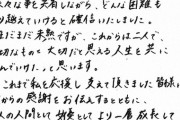 々な事を共有しながら、どんな困難も
り越えていけると確信いたしました。
まだまだ未熟ですが、これからは二人で、
切なものと 大切だと思える人生を共に
んでいけた と思います。
これまで私を応援し支えて頂きました皆様に
からの感謝をお伝えするとともに、
人の人間として よりー層成長して